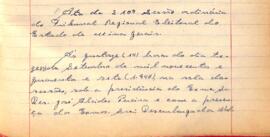 Ata da 210ª Sessão ordinária
do Tribunal Regional Eleitoral do
Estado de Minas Gerais
Às quatorze (14) horas do dia
Setembro de mil novecentos e
quarenta e sete (1.947), na sala das
sessões, sob a presidência do Exmo. Sr.
Des. José Alcides Pereira e com a presen-
ça dos Exmos. Srs. Desembargador